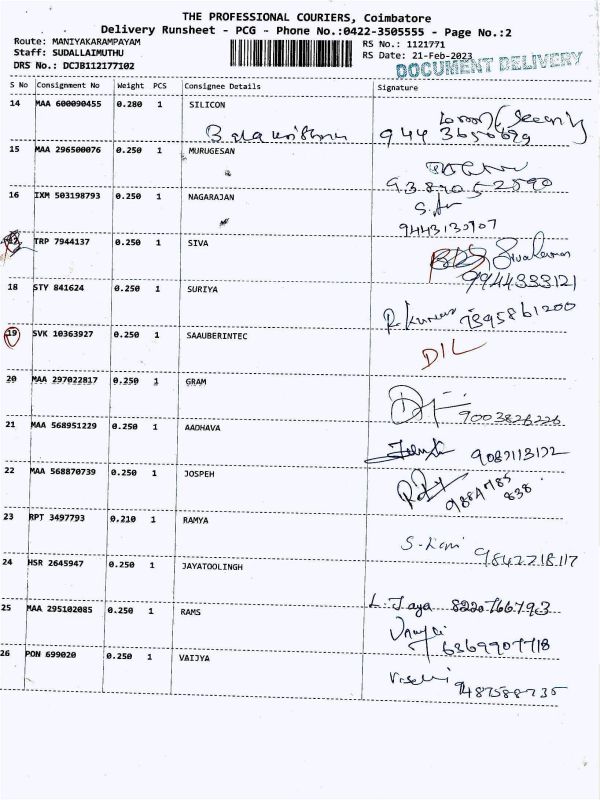 THE PROFESSIONAL COURIERS, Coimbatore
Delivery Runsheet - PCG - Phone No.:0422-3505555 - Page No.:2
Route: MANIYAKARAMPAYAM
RS No.: 1121771
Staff: SUDALLAIMUTHU
RS Date: 21-Feb-2023
DRS No.: DCJB112177102
DOCUMENT DELIVERY
S No Consignment No Weight PCS Consignee Details Signature
14 MAA 600090455 0.280 1 SILICON
15 MAA 296500076 0.250 1 MURUGESAN
16 IXM 503198793 0.250 1 NAGARAJAN
9443130907
TRP 7944137 0.250 1 SIVA
9944333121
18 STY 841624 0.250 1 SURIYA
R. Kumar 7395861200
19 SVK 10363927 0.250 1 SAAUBERINTEC
DIL
20 MAA 297022817 0.250 1 GRAM
9003826226
21 MAA 568951229 0.250 1 AADHAVA
9087113172
22 MAA 568870739 0.250 1 JOSPEH
9884785
838
23 RPT 3497793 0.210 1 RAMYA
9842218117
24 HSR 2645947 0.250 1 JAYATOOLINGH
L. Jaya 8220766793
25 MAA 295102085 0.250 1 RAMS
6869907718
26 PON 699020 0.250 1 VAIJYA
9487588735